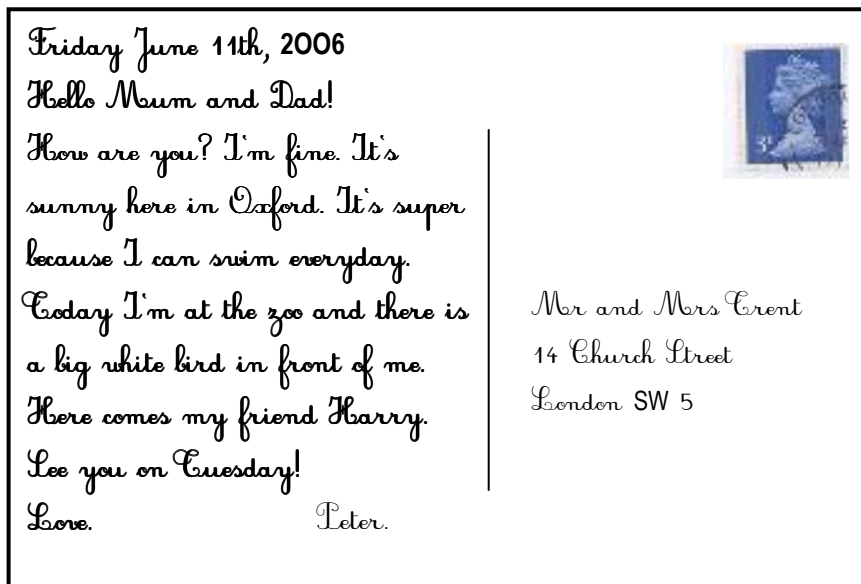 Friday June 11th, 2006
Hello Mum and Dad!
How are you? I'm fine. It's
sunny here in Oxford. It's super
because I can swim everyday.
Today I'm at the zoo and there is
a big white bird in front of me.
Here comes my friend Harry.
See you on Tuesday!
Love.
Peter.
Mr and Mrs Trent
14 Church Street
London SW 5